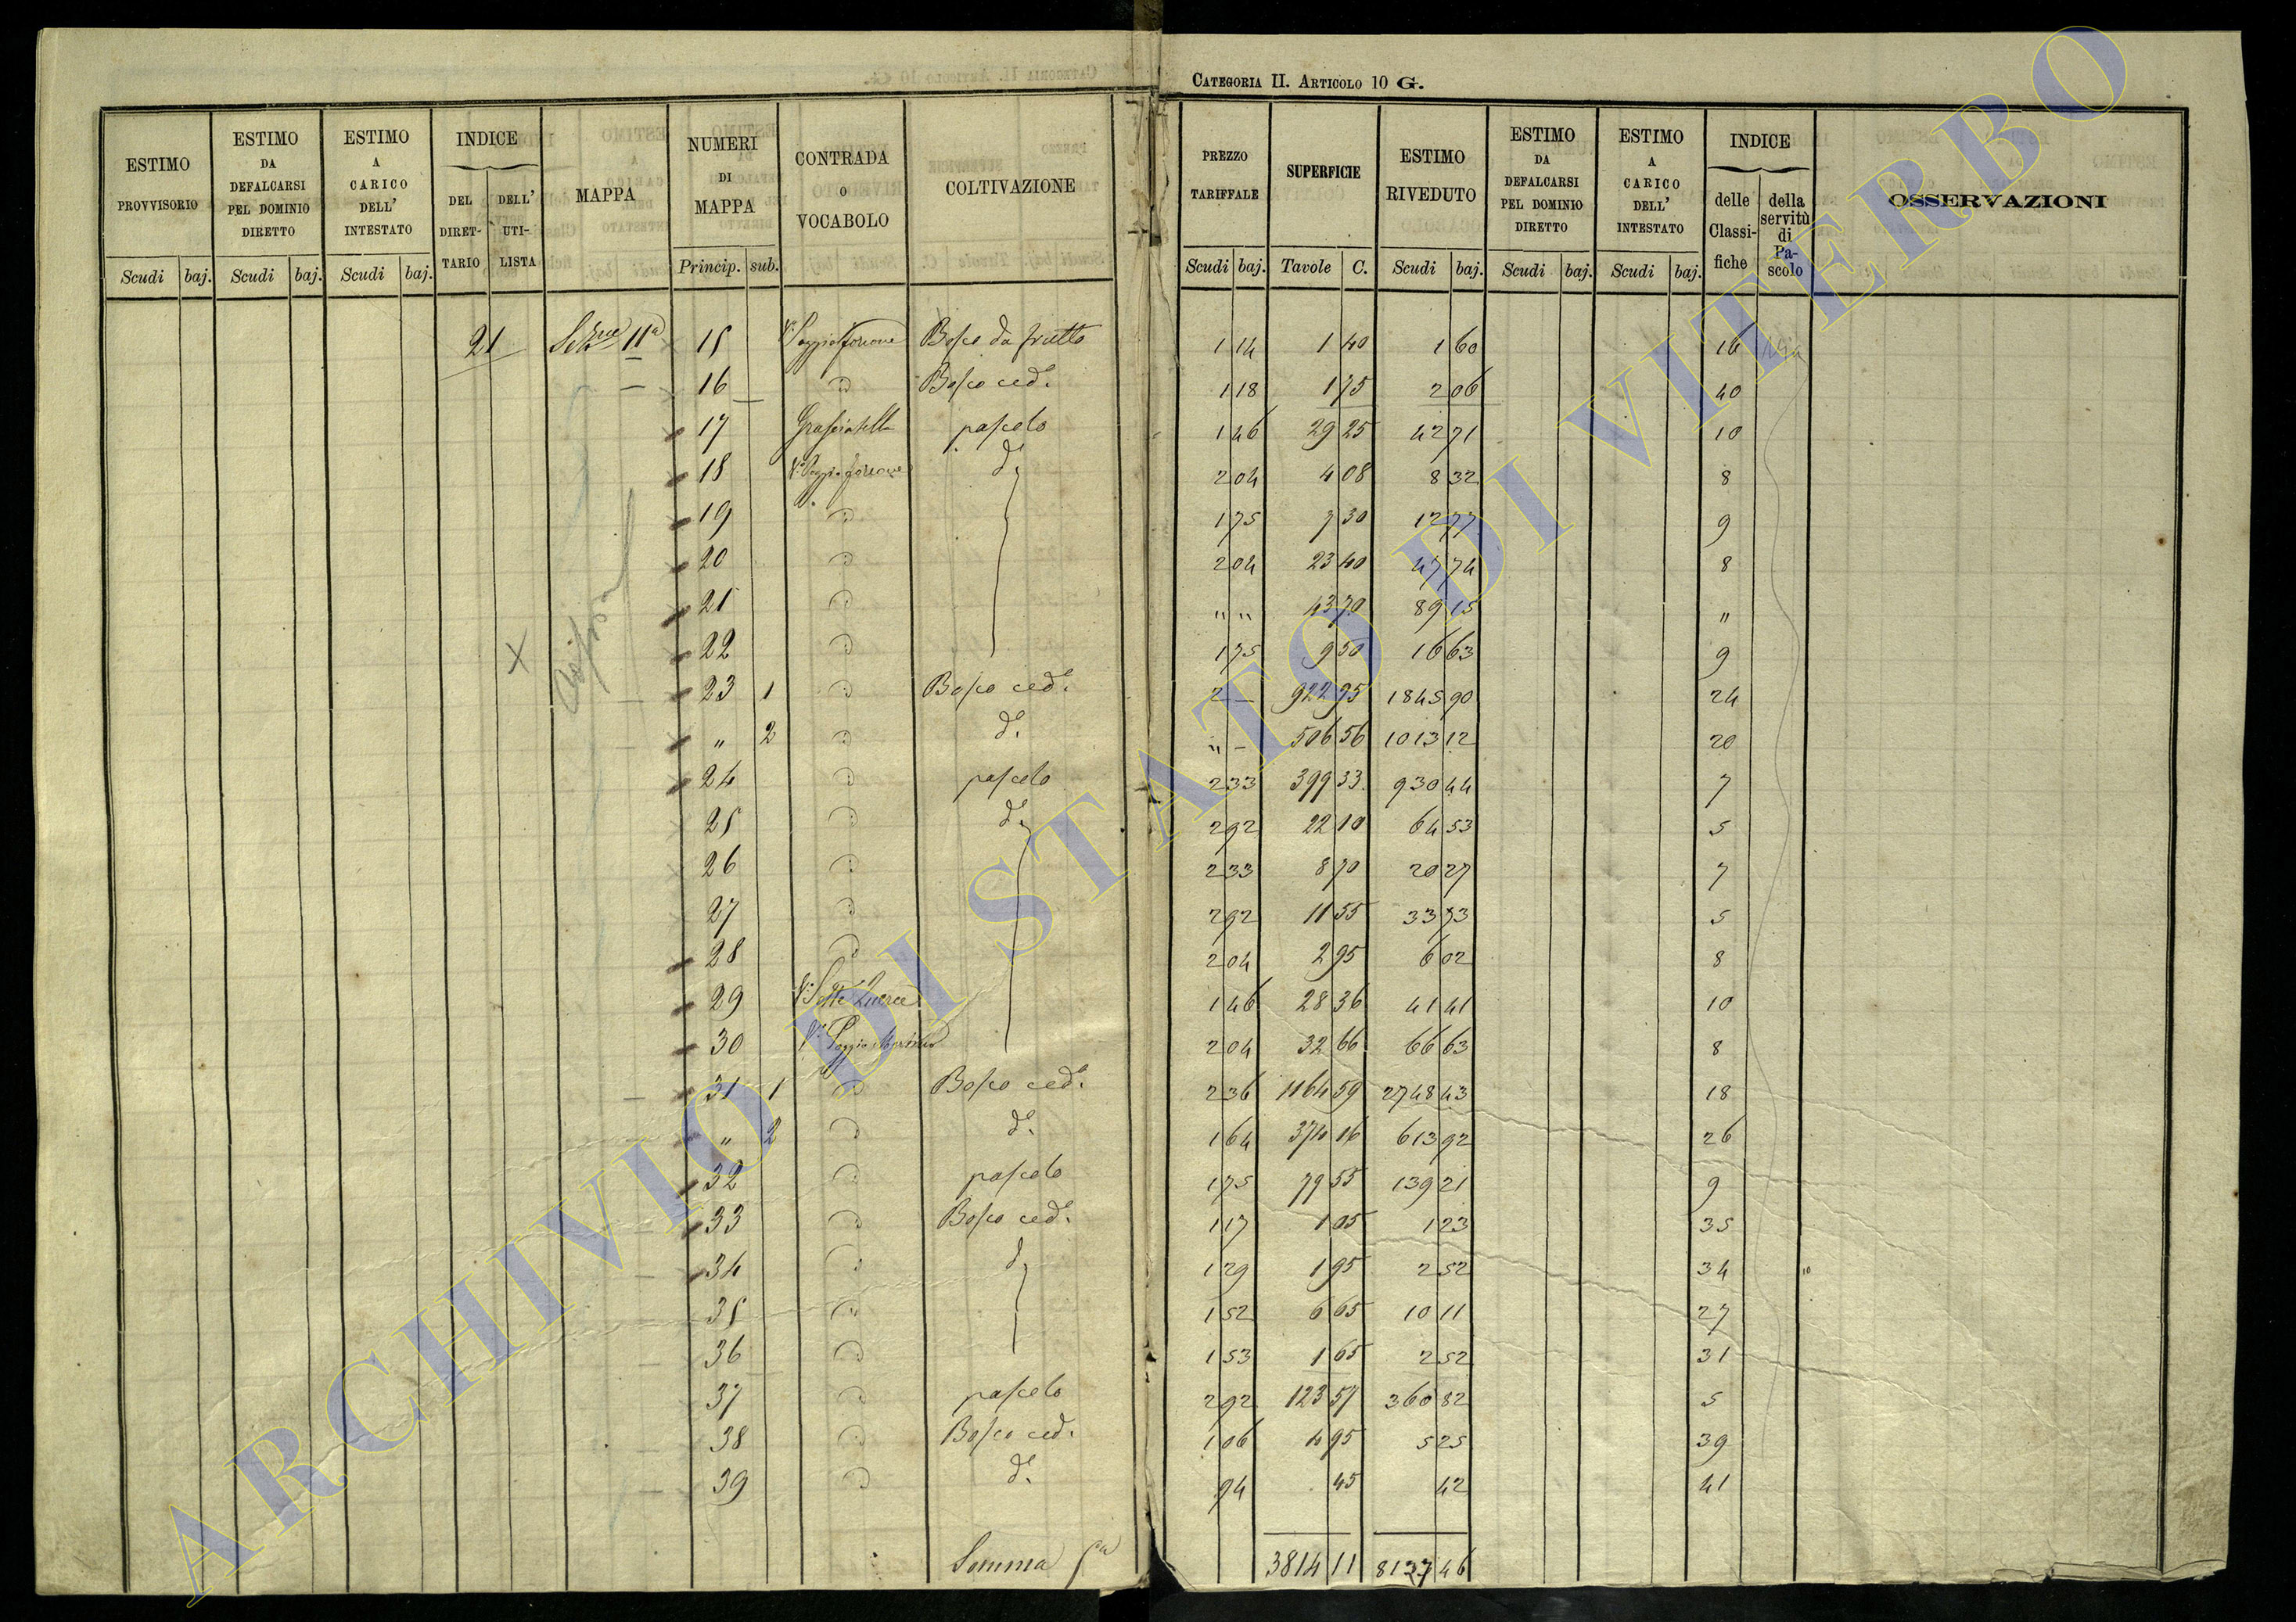 CATEGORIA II. ARTICOLO 10 G.
ESTIMO PROVVISORIO | ESTIMO DA DEFALCARSI PEL DOMINIO DIRETTO | ESTIMO A CARICO DELL' INTESTATO | INDICE DEL DIRET-TARIO | DELL' UTI-LISTA | MAPPA | NUMERI DI MAPPA | CONTRADA O VOCABOLO | COLTIVAZIONE | PREZZO TARIFFALE | SUPERFICIE | ESTIMO RIVEDUTO | ESTIMO DA DEFALCARSI PEL DOMINIO DIRETTO | ESTIMO A CARICO DELL' INTESTATO | INDICE delle Classi-fiche | della servitù di Pa-scolo | OSSERVAZIONI
Scudi | baj. | Scudi | baj. | Scudi | baj. | Princip. | sub. | Scudi | baj. | Tavole | C. | Scudi | baj. | Scudi | baj. | Scudi | baj.
21 | 11a | 15 | Bosco da frutto | 1 14 | 1 40 | 1 60 | 16
16 | " | Bosco ced. | 1 18 | 1 75 | 2 06 | 40
17 | pascolo | 1 46 | 29 25 | 42 71 | 10
18 | do | 2 04 | 4 08 | 8 32 | 8
19 | " | 1 75 | 7 30 | 12 77 | 9
20 | " | 2 04 | 23 40 | 47 74 | 8
21 | " | " " | 43 70 | 89 15 | "
22 | " | 1 75 | 9 50 | 16 63 | 9
23 | 1 | " | Bosco ced. | 2 — | 922 95 | 1845 90 | 24
" | 2 | " | do | " — | 506 56 | 1013 12 | 20
24 | " | pascolo | 2 33 | 399 33 | 930 44 | 7
25 | " | do | 2 92 | 22 10 | 64 53 | 5
26 | " | 2 33 | 8 70 | 20 27 | 7
27 | " | 2 92 | 11 55 | 33 73 | 5
28 | " | 2 04 | 2 95 | 6 02 | 8
29 | 1 46 | 28 36 | 41 41 | 10
30 | 2 04 | 32 66 | 66 63 | 8
31 | 1 | " | Bosco ced. | 2 36 | 1164 59 | 2748 43 | 18
" | 2 | " | do | 1 64 | 374 | 613 92 | 26
32 | " | pascolo | 1 75 | 79 55 | 139 21 | 9
33 | " | Bosco ced. | 1 17 | 1 05 | 1 23 | 35
34 | " | do | 1 29 | 1 95 | 2 52 | 34
35 | " | 1 52 | 6 65 | 10 11 | 27
36 | " | 1 53 | 1 65 | 2 52 | 31
37 | " | pascolo | 2 92 | 123 57 | 360 82 | 5
38 | " | Bosco ced. | 1 06 | 4 95 | 5 25 | 39
39 | " | do | 94 | 45 | 42 | 41
Somma | 3814 11 | 8137 46
ARCHIVIO DI STATO DI VITERBO